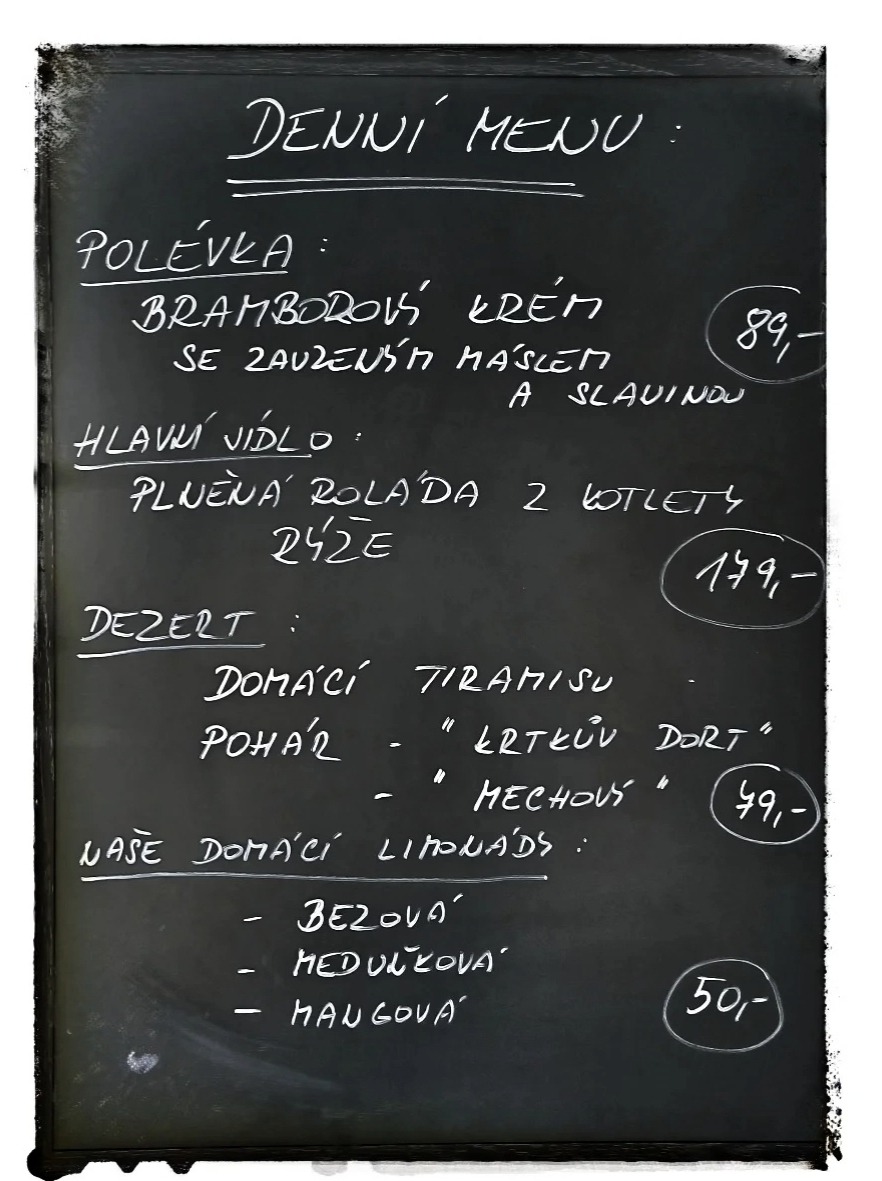 DENNÍ MENU :
POLÉVKA :
BRAMBOROVÝ KRÉM
SE ZAUZENÝM MÁSLEM
A SLAVINOU
89,-
HLAVNÍ JÍDLO :
PLNĚNÁ ROLÁDA Z KOTLETY
RÝŽE
179,-
DEZERT :
DOMÁCÍ TIRAMISU
POHÁR - "KRTKŮV DORT"
- "MECHOVÝ"
79,-
NAŠE DOMÁCÍ LIMONÁDY :
- BEZOVÁ
- MEDUŇKOVÁ
- MANGOVÁ
50,-